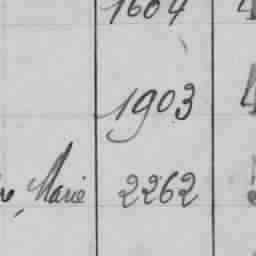 1604
1903
Marie 2262